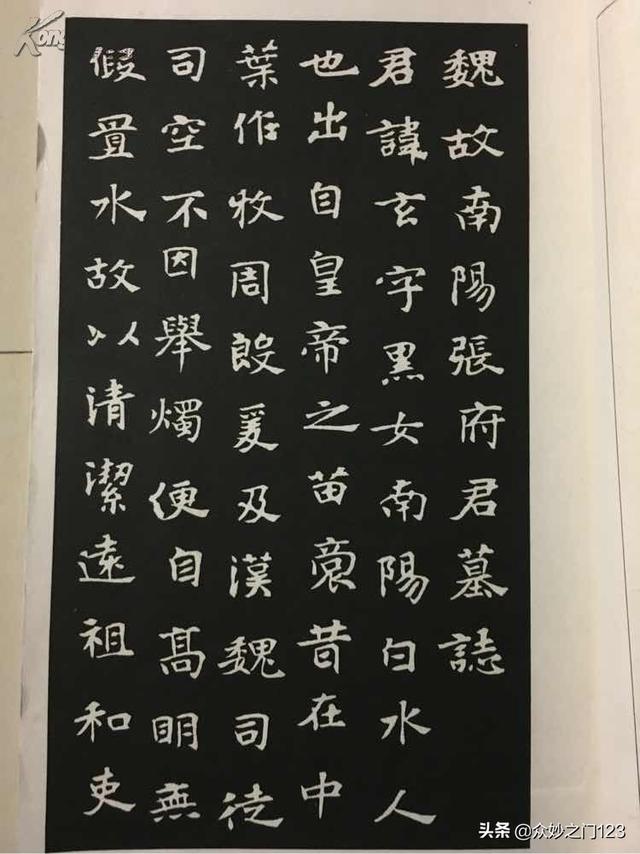 魏故南陽張府君墓誌
君諱玄字黑女南陽白水人
也出自皇帝之苗裔昔在中
葉作牧周殷爰及漢魏司徒
司空不因舉燭便自高明無
假置水故以清潔遠祖和吏
Kong
头条 @众妙之门123